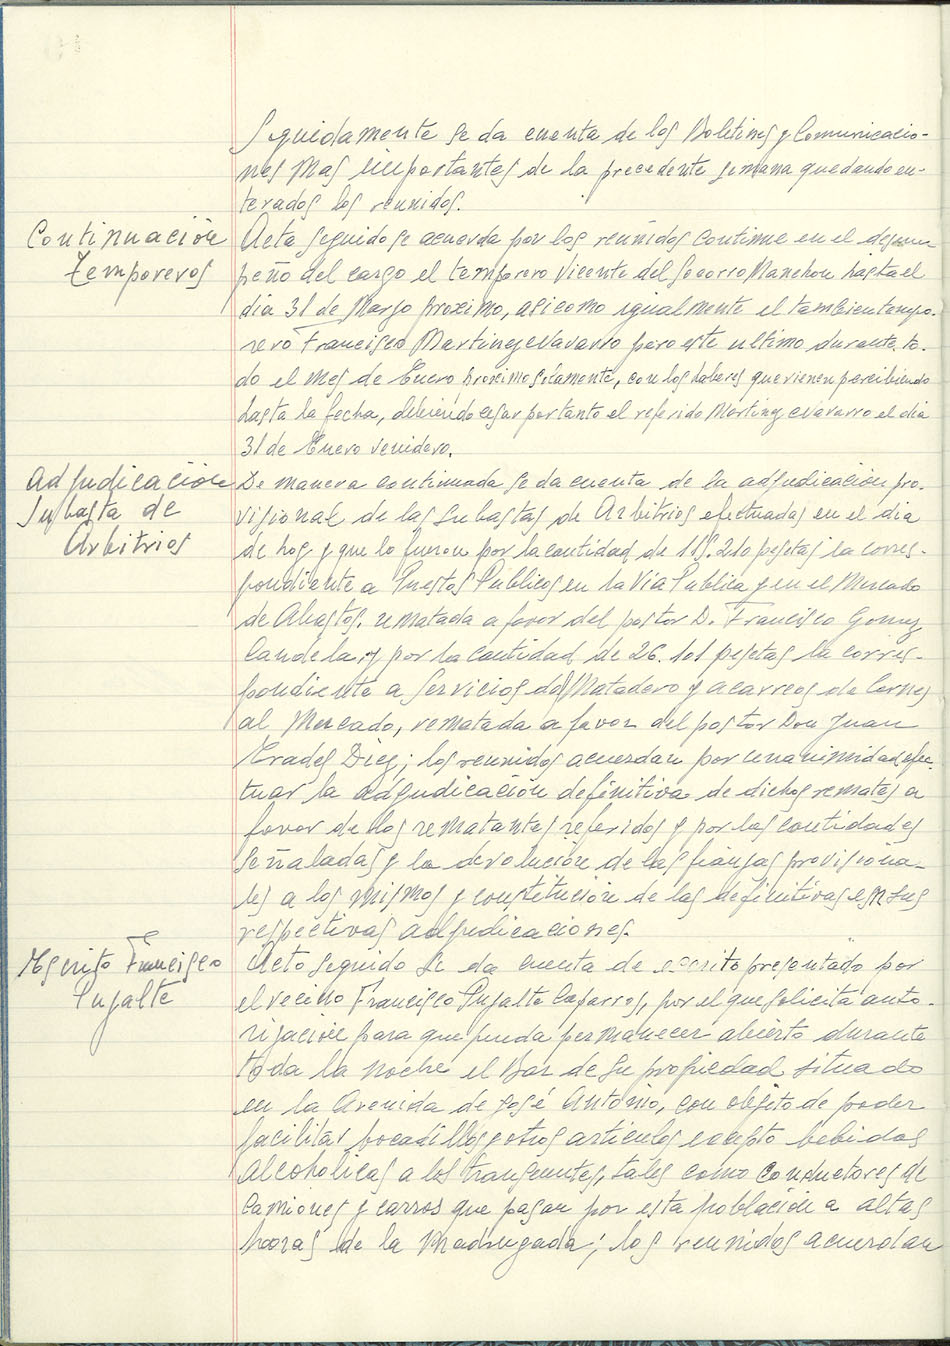 Seguidamente se da cuenta de los Boletines y Comunicacio-
nes mas importantes de la precedente semana quedando en-
terados los reunidos.
Continuación
Temporeros
Acto seguido se acuerda por los reunidos continue en el desem
peño del cargo el temporero Vicente del Socorro Manchon hasta el
dia 31 de Marzo proximo, asi como igualmente el tambien tempo-
rero Francisco Martinez Navarro pero este ultimo durante to-
do el mes de Enero proximo sólamente, con los haberes que vienen percibiendo
hasta la fecha, debiendo cesar por tanto el referido Martinez Navarro el dia
31 de Enero venidero.
Adjudicación
Subasta de
Arbitrios
De manera continuada se da cuenta de la adjudicación pro-
visional de las subastas de Arbitrios efectuadas en el dia
de hoy y que lo fueron por la cantidad de 115.210 pesetas la corres-
pondiente a Puestos Publicos en la Via Publica y en el Mercado
de Abastos. rematada a favor del postor D. Francisco Gomez
Candela, y por la cantidad de 26.101 pesetas la corres-
pondiente a Servicios del Matadero y acarreos de Carnes
al Mercado, rematada a favor del postor Don Juan
Prades Diez; los reunidos acuerdan por unanimidad efec-
tuar la adjudicación definitiva de dichos remates a
favor de los rematantes referidos y por las cantidades
señaladas y la devolución de las fianzas provisiona-
les a los mismos y constitución de las definitivas en sus
respectivas adjudicaciones.
Escrito Francisco
Pujalte
Acto seguido se da cuenta de escrito presentado por
el vecino Francisco Pujalte Caparros, por el que solicita auto-
rización para que pueda permanecer abierto durante
toda la noche el Bar de su propiedad situado
en la Avenida de José Antonio, con objeto de poder
facilitar bocadillos y otros articulos excepto bebidas
alcoholicas a los transeuntes, tales como conductores de
Camiones y carros que pasan por esta población a altas
horas de la Madrugada; los reunidos acuerdan